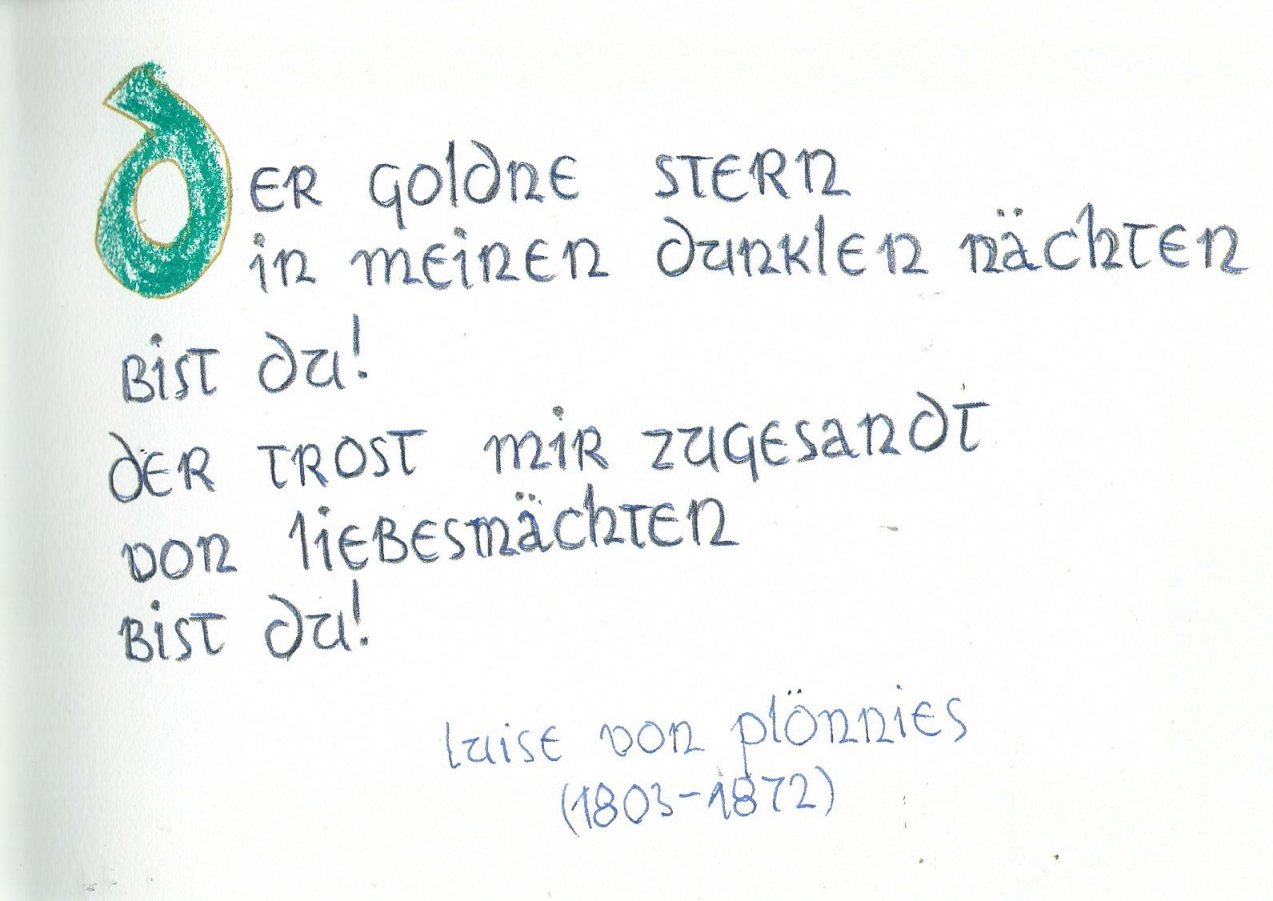 Der goldne Stern
in meinen dunklen Nächten
bist du!
Der Trost mir zugesandt
von Liebesmächten
bist du!
Luise von Plönnies
(1803-1872)